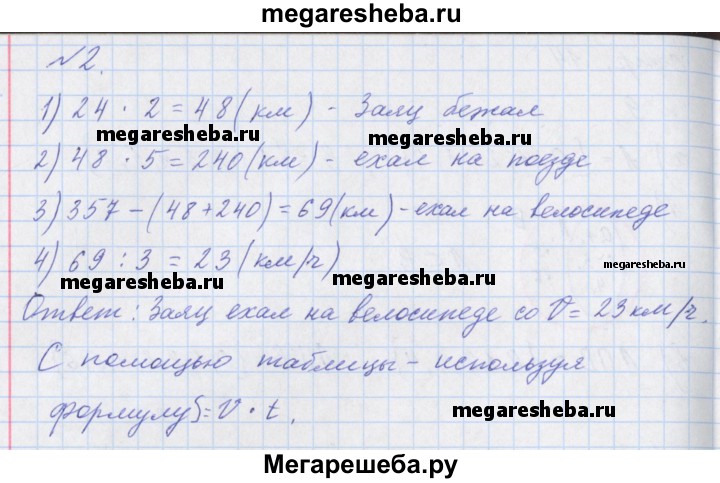 megaresheba.ru
№2.
1) 24 · 2 = 48 (км) - Заяц бежал
megaresheba.ru megaresheba.ru
2) 48 · 5 = 240 (км) - ехал на поезде
3) 357 - (48 + 240) = 69 (км) - ехал на велосипеде
4) 69 : 3 = 23 (км/ч)
megaresheba.ru megaresheba.ru megaresheba.ru
Ответ: Заяц ехал на велосипеде со V = 23 км/ч.
С помощью таблицы - используя
формулу S = V · t.
megaresheba.ru
Мегарешеба.ру